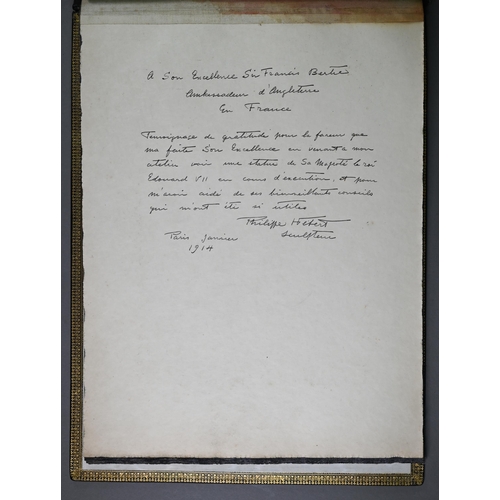 A Son Excellence Sir Francis Bertie
Ambassadeur d'Angleterre
En France
Temoignage de gratitude pour la faveur que
ma faite Son Excellence en venant a mon
atelier voir une statue de Sa Majesté le roi
Edouard VII en cours d'execution, et pour
m'avoir aidé de ses bienveillants conseils
qui m'ont été si utiles
Philippe Hébert
Sculpteur
Paris Janvier
1914